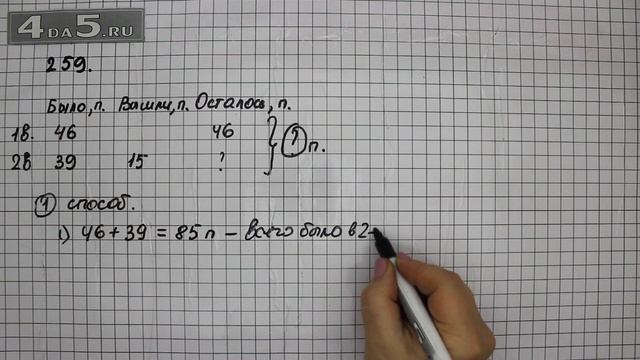 4DA5.RU
259.
Было, п. Вышли, п. Осталось, п.
1в. 46 46
2в 39 15 ? ? п.
1 способ.
1) 46 + 39 = 85 п – всего было в 2-